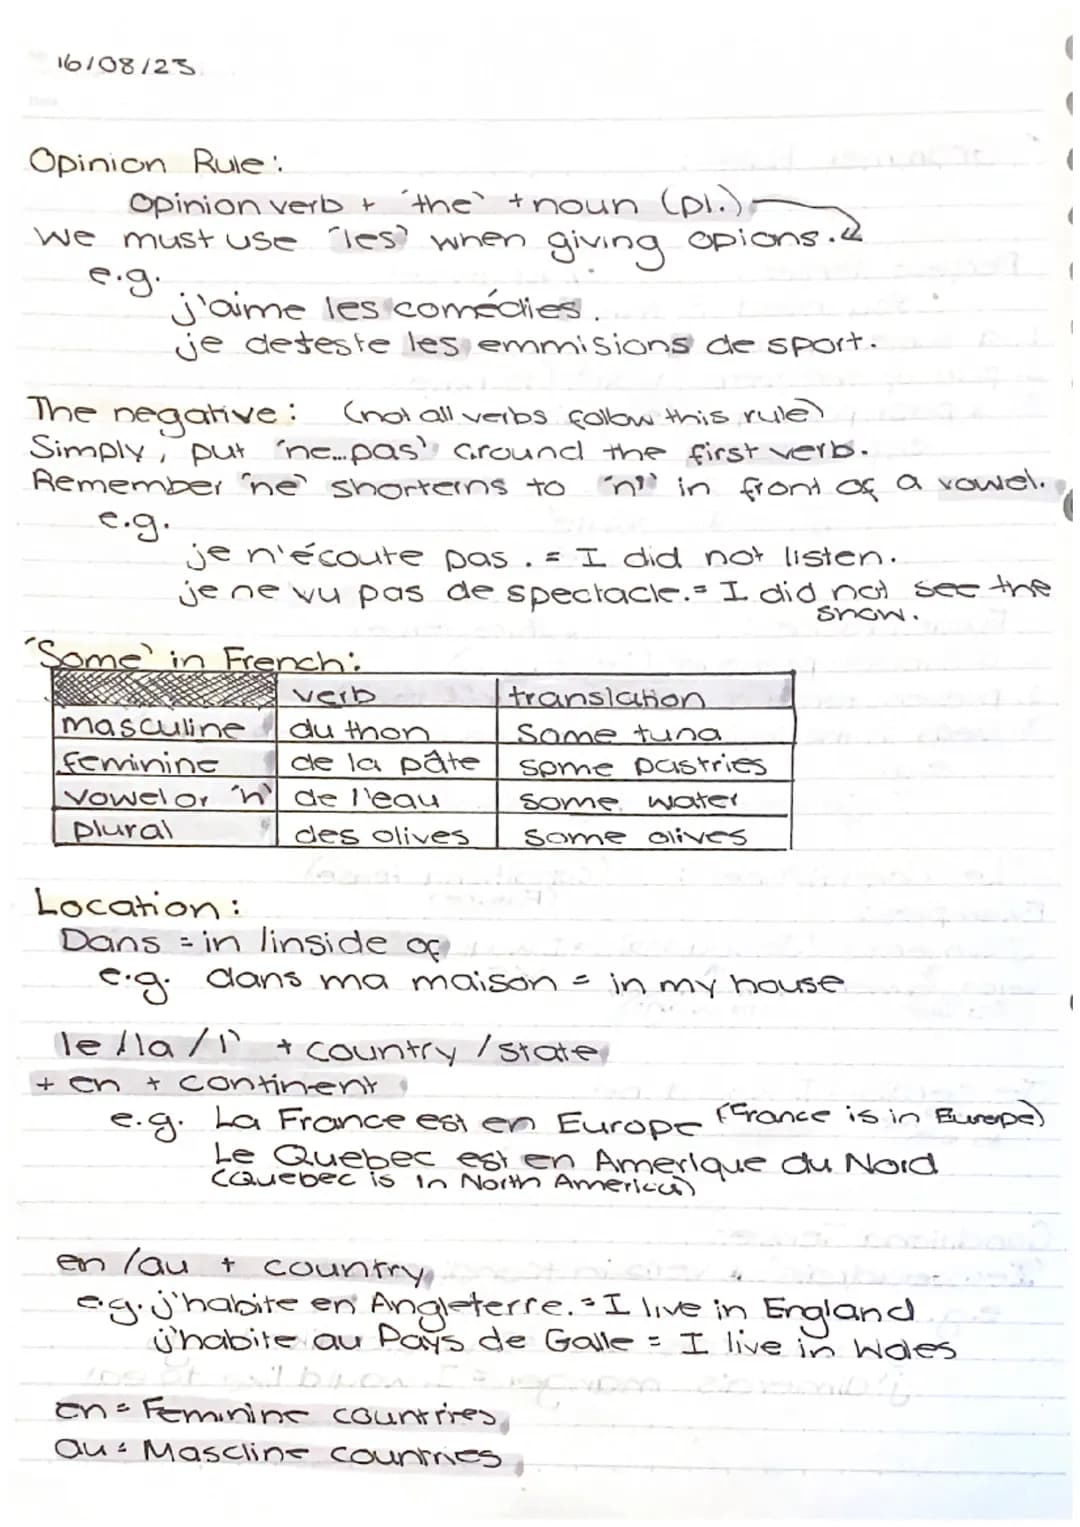 16/08/23
Opinion Rule:
Opinion verb + 'the' + noun (pl.)
We must use 'les' when giving opions.
e.g.
j'aime les comédies.
je deteste les emmisions de sport.
The negative: (not all verbs follow this rule)
Simply, put 'ne...pas' around the first verb.
Remember 'ne' shorterns to 'n'' in front of a vowel.
e.g.
je n'écoute pas. = I did not listen.
je ne vu pas de spectacle. = I did not see the
show.
'Some' in French:
verb translation
masculine du thon some tuna
feminine de la pâte some pastries
vowel or 'h' de l'eau some water
plural des olives some olives
Location:
Dans = in /inside of
e.g. dans ma maison = in my house
le /la /l' + country /state
+ en + continent
e.g. La France est en Europe (France is in Europe)
Le Quebec est en Amerique du Nord
(Quebec is in North America)
en /au + country
e.g. j'habite en Angleterre. = I live in England
j'habite au Pays de Galle = I live in Wales
en = Feminine countries
au = Mascline countries